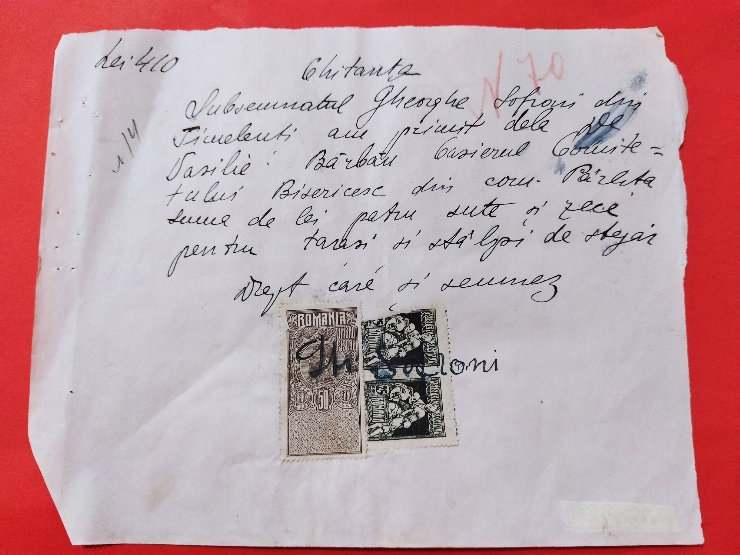 Lei 410
Chitanta
N 70
Subsemnatul Gheorghe Sofroni din
Simelenti am primit dela
Vasilie Bârbân casierul Comite=
tului Bisericesc din com. Pârlita
suma de lei patru sute si zece
pentru tarasi si stâlpi de stejar
drept care si semnez
ROMANIA
Gh Sofroni
50